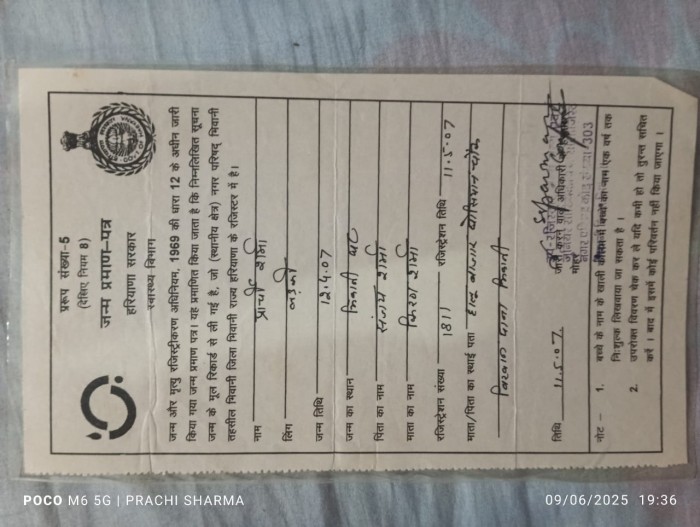 प्ररूप संख्या-5
(देखिए नियम 8)
जन्म प्रमाण-पत्र
हरियाणा सरकार
स्वास्थ्य विभाग
जन्म और मृत्यु रजिस्ट्रीकरण अधिनियम, 1969 की धारा 12 के अधीन जारी
किया गया जन्म प्रमाण पत्र। यह प्रमाणित किया जाता है कि निम्नलिखित सूचना
जन्म के मूल रिकार्ड से ली गई है, जो (स्थानीय क्षेत्र) नगर परिषद् भिवानी
तहसील भिवानी जिला भिवानी राज्य हरियाणा के रजिस्टर में है।
नाम प्राची शर्मा
लिंग लड़की
जन्म तिथि 12.4.07
जन्म का स्थान भिवानी घर
पिता का नाम संजय शर्मा
माता का नाम किरण शर्मा
रजिस्ट्रेशन संख्या 1811 रजिस्ट्रेशन तिथि 11.5.07
माता/पिता का स्थाई पता हालु बाजार चौक
पाना भिवानी
तिथि 11.5.07 जारी करने वाले अधिकारी के
मोहर
303
नोट – 1. बच्चे के नाम के खाली कॉलम में बच्चे का नाम एक वर्ष तक
नि:शुल्क लिखवाया जा सकता है।
2. उपरोक्त विवरण चैक कर लें यदि कमी हो तो तुरन्त सूचित
करें। बाद में इसमें कोई परिवर्तन नहीं किया जाएगा।
POCO M6 5G | PRACHI SHARMA
09/06/2025 19:36